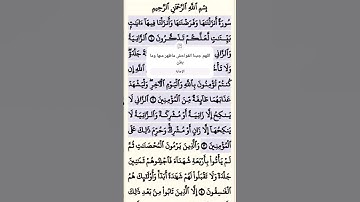 بِسْمِ ٱللَّهِ ٱلرَّحْمَٰنِ ٱلرَّحِيمِ
سُورَةٌ أَنزَلْنَٰهَا وَفَرَضْنَٰهَا وَأَنزَلْنَا فِيهَآ ءَايَٰتٍۭ
بَيِّنَٰتٍ لَّعَلَّكُمْ تَذَكَّرُونَ ۝ ٱلزَّانِيَةُ
وَٱلزَّانِي جَلْدَةٍ
اللهم جنبنا الفواحش ماظهر منها وما بطن
وَلَا تَأْخُذْ إِن
كُنتُمْ تُؤْمِنُونَ بِٱللَّهِ وَٱلْيَوْمِ ٱلْءَاخِرِ ۖ وَلْيَشْهَدْ
عَذَابَهُمَا طَآئِفَةٌ مِّنَ ٱلْمُؤْمِنِينَ ۝ ٱلزَّانِي لَا
يَنكِحُ إِلَّا زَانِيَةً أَوْ مُشْرِكَةً وَٱلزَّانِيَةُ لَا
يَنكِحُهَآ إِلَّا زَانٍ أَوْ مُشْرِكٌ ۚ وَحُرِّمَ ذَٰلِكَ عَلَى
ٱلْمُؤْمِنِينَ ۝ وَٱلَّذِينَ يَرْمُونَ ٱلْمُحْصَنَٰتِ ثُمَّ
لَمْ يَأْتُوا۟ بِأَرْبَعَةِ شُهَدَآءَ فَٱجْلِدُوهُمْ ثَمَٰنِينَ
جَلْدَةً وَلَا تَقْبَلُوا۟ لَهُمْ شَهَٰدَةً أَبَدًا ۚ وَأُو۟لَٰٓئِكَ هُمُ
ٱلْفَٰسِقُونَ ۝ إِلَّا ٱلَّذِينَ تَابُوا۟ مِنۢ بَعْدِ ذَٰلِكَ